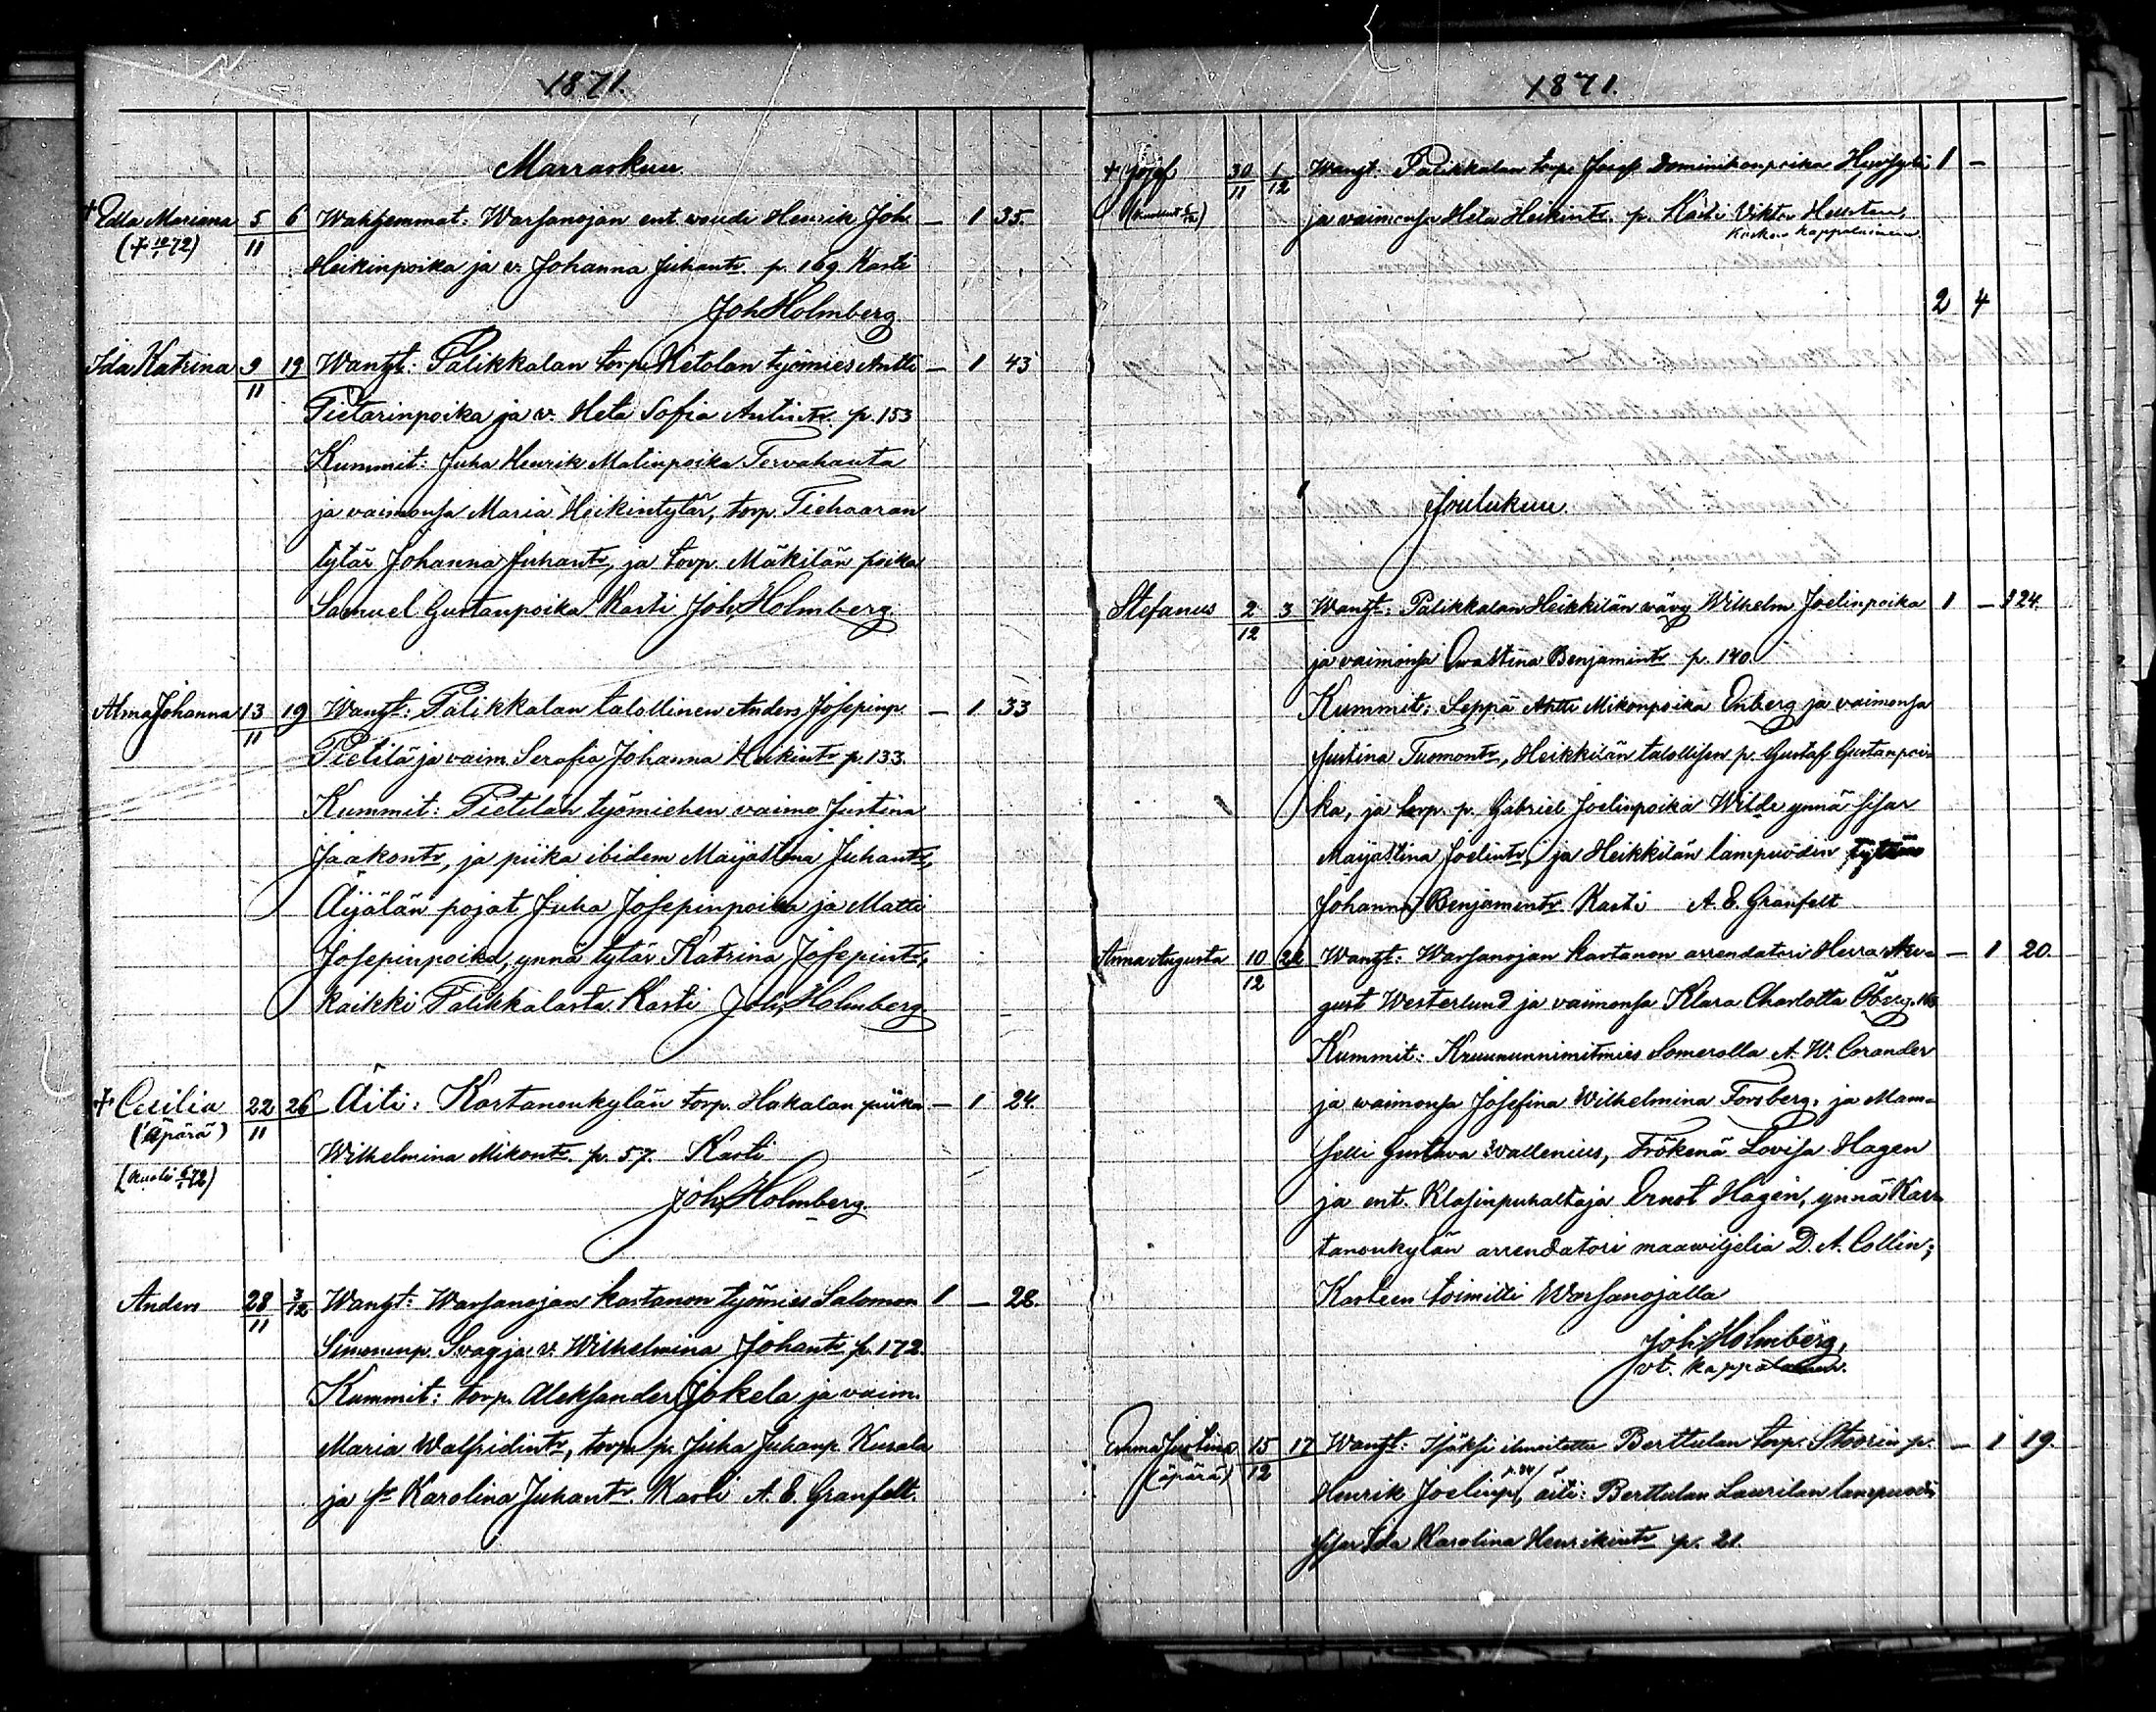 1871.
Marraskuu
+ Edla Mariana 5/11 6 Wanhemmat: Warsanojan ent. woudi Henrik Joh. — 1 35.
(+ 10/1 72) Heikinpoika ja v. Johanna Juhantr. p. 169 Kasti
Joh Holmberg
Ida Katrina 9/11 19 Wanht: Palikkalan torp. Ketolan työmies Antti — 1 43
Pietarinpoika ja v. Heta Sofia Antintr. p. 153
Kummit: Juha Henrik Matinpoika Torvahauta
ja vaimonsa Maria Heikintytär, torp. Tiehaaran
tytär Johanna Juhantr, ja torp. Mäkilän poika
Samuel Gustanpoika Kasti Joh. Holmberg.
Alma Johanna 13/11 19 Wanht: Palikkalan talollinen Anders Josepinp. — 1 33
Pietilä ja vaim. Serafia Johanna Heikintr p. 133.
Kummit: Pietilän työmiehen vaimo Justina
Jaakontr, ja piika ibidem Maijastina Juhantr,
Äijälän pojat Juha Josepinpoika ja Matti
Josepinpoika, ynnä tytär Katrina Josepintr,
kaikki Palikkalasta. Kasti Joh. Holmberg.
+ Cecilia 22/11 26 Äiti: Kartanonkylän torp. Hakalan piika — 1 24.
(äpärä) Wilhelmina Mikontr. p. 57. Kasti
(kuoli 6/1 72)
Joh. Holmberg.
Anders 28/11 3/12 Wanht: Warsanojan kartanon työmies Salomon 1 — 28.
Simoninp. Svag ja v. Wilhelmina Johantr p. 172.
Kummit: torp. Aleksander Jokela ja vaim.
Maria Walfridintr, torp. p. Juha Juhanp. Kusala
ja Karolina Juhantr. Kasti A. E. Granfelt.
1871.
+ Josef 30/11 1/12 Wanht. Palikkalan torp. Josef Dominikonpoika 1 —
ja vaimonsa Heta Heikintr. p. Kasti Viktor Hellsten,
Kosken kappalainen
2 4
Joulukuu
Stefanus 2/12 3 Wanht: Palikkalan Heikkilän vävy Wilhelm Joelinpoika 1 — 24.
ja vaimonsa Evastina Benjamintr p. 140
Kummit: Seppä Antti Mikonpoika Enberg ja vaimonsa
Justina Tuomontr, Heikkilän talollisen p. Gustaf Gustanpoi-
ka, ja torp. p. Gabriel Joelinpoika Wilde ynnä sisar
Maijastina Joelintr, ja Heikkilän lampuodin tytär
Johanna Benjamintr Kasti A. E. Granfelt
Anna Augusta 10/12 26 Wanht: Warsanojan kartanon arrendatori Herra Au- — 1 20.
gust Westerlund ja vaimonsa Klara Charlotta Öberg.
Kummit: Kruununnimitmies Somerolla A. W. Corander
ja waimonsa Josefina Wilhelmina Forsberg, ja Mam-
selli Gustava Wallenius, Frökenä Lovisa Hagen
ja ent. Klasinpuhaltaja Ernst Hagen, ynnä Kar-
tanonkylän arrendatori maawiljelia D. A. Collin;
Kasteen toimitti Warsanojalla
Joh. Holmberg,
vt. kappalainen.
Emma Justina 15/12 17 Wanht: Isäksi ilmoitettu Berttulan torp. Stoorin p. — 1 19.
(äpärä) Henrik Joelinp. äiti: Berttulan Laurilan lampuodin
sisar Ida Karolina Henrikintr p. 21.